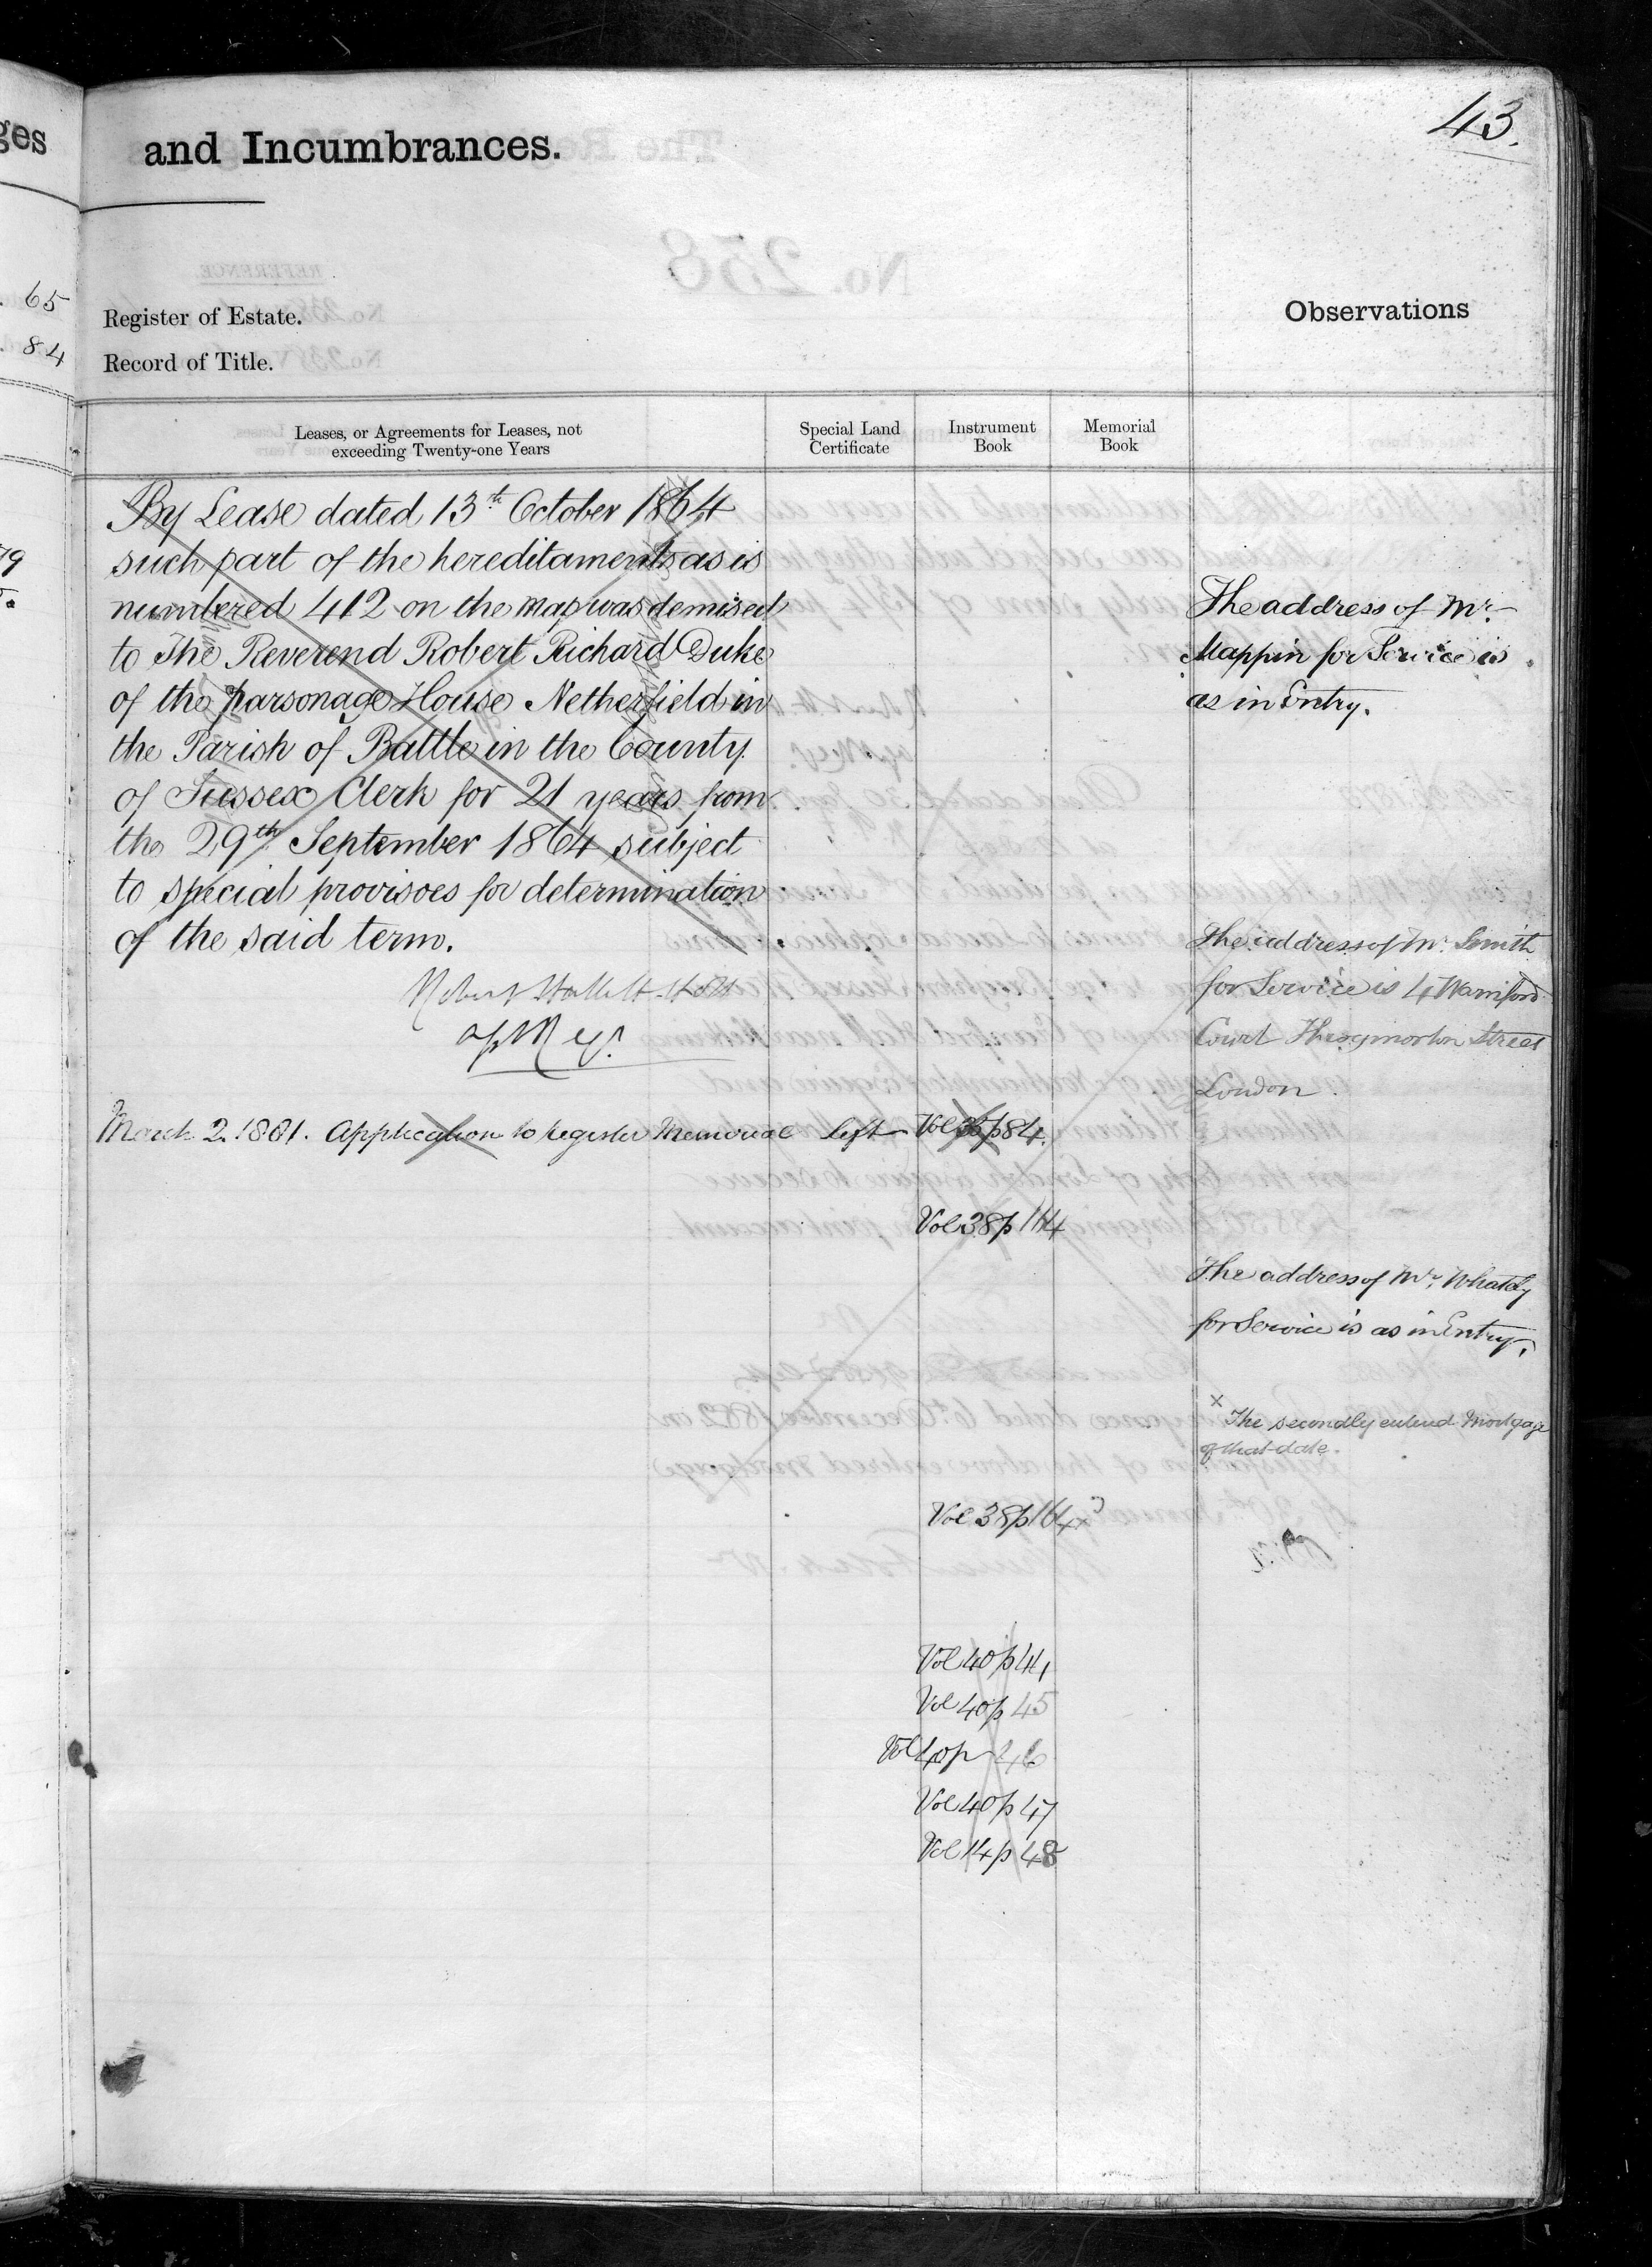 43.
ges
and Incumbrances.
65
84
Register of Estate.
Record of Title.
Observations
Leases, or Agreements for Leases, not
exceeding Twenty-one Years
Special Land
Certificate
Instrument
Book
Memorial
Book
By Lease dated 13th October 1864
such part of the hereditaments as is
numbered 412 on the map was demised
to The Reverend Robert Richard Duke
of the parsonage House Netherfield in
the Parish of Battle in the County
of Sussex Clerk for 21 years from
the 29th September 1864 subject
to special provisoes for determination
of the said term.
Robert Hallett Holt
March 2. 1881. Application to register Memorial left Vol 35 p 84.
Vol 38 p 114
Vol 38 p 164 x
Vol 40 p 44
Vol 40 p 45
Vol 40 p 46
Vol 40 p 47
Vol 14 p 48
The address of Mr.
Mappin for Service is
as in Entry.
The address of Mr. Smith
for Service is 4 Warnford
Court Throgmorton Street
London.
The address of Mr. Whately
for Service is as in Entry.
x The secondly entered Mortgage
of that date.